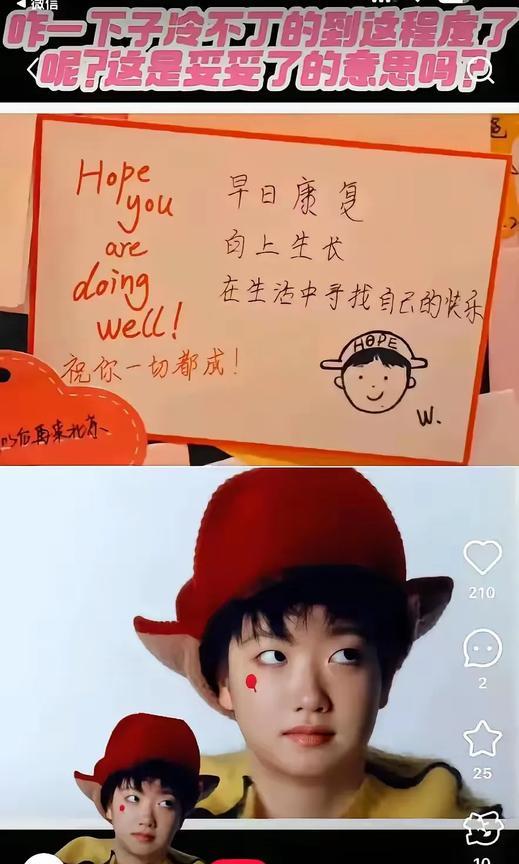 微信
咋一下子冷不丁的到这程度了
呢?这是妥妥了的意思吗?
Hope
you
are
doing
well!
祝你一切都成!
早日康复
向上生长
在生活中寻找自己的快乐
HOPE
W.
后再来北京、
210
2
25
10